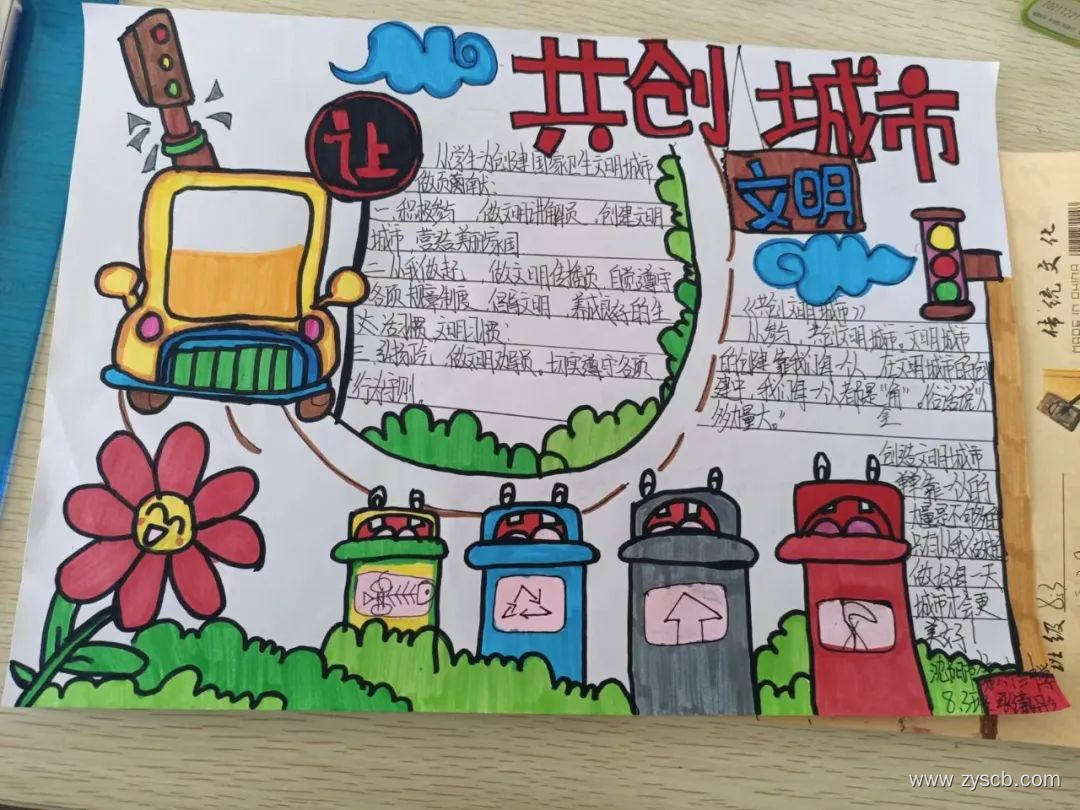 共创 城市
文明
让
从学生为创建国家卫生文明城市
做贡献：
一、积极参与，做文明讲解员，创建文明
城市，营造美丽家园
二、从我做起，做文明传播员，自觉遵守
各项规章制度，倡导文明，养成良好的生
活习惯、文明习惯；
三、做文明劝导员。切实遵守各项
行为守则。
《共创文明城市》
从参与，共创文明城市。文明城市
的创建靠我们每一人，在文明城市的创
建中，我们每一人都是“角”，俗话说“人
多力量大。”
创造文明城市
单靠一人的
力量是不够的
只有从我做起
做好每一天
城市才会更
美好！
8.3班
传统文化
MADE IN CHINA
班级 8.3
www.zyscb.com